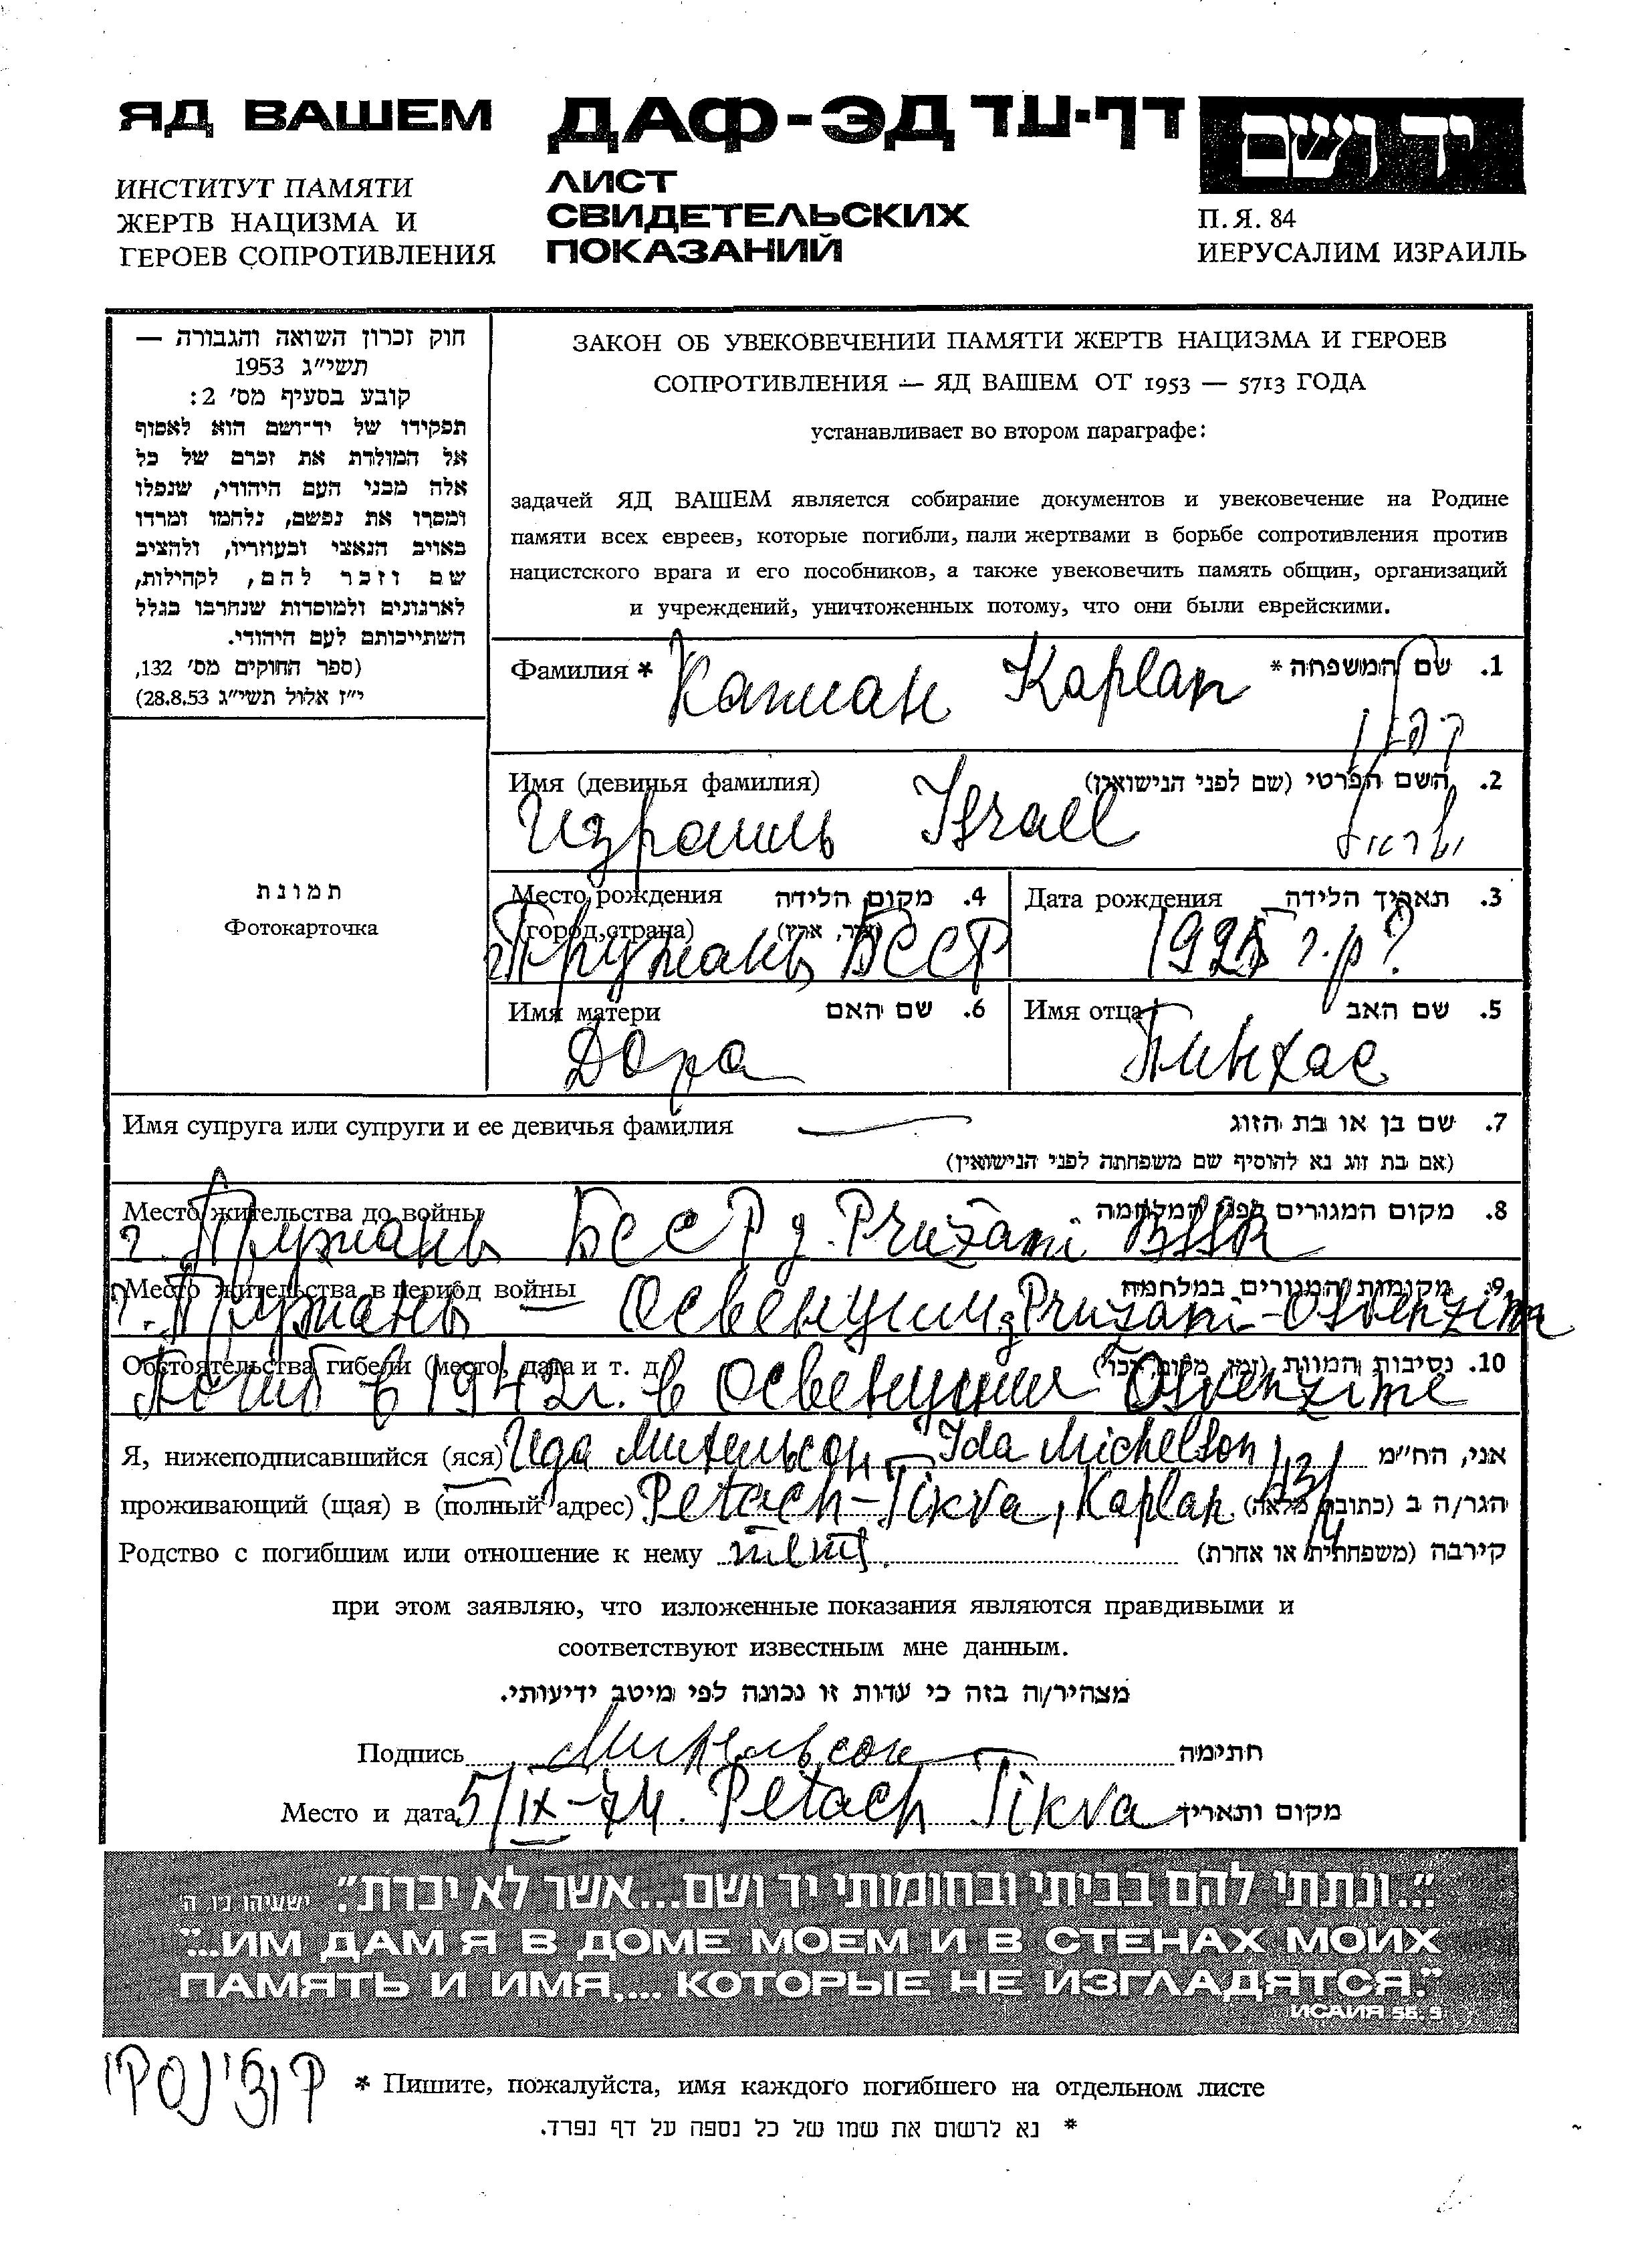 ЯД ВАШЕМ
ИНСТИТУТ ПАМЯТИ
ЖЕРТВ НАЦИЗМА И
ГЕРОЕВ СОПРОТИВЛЕНИЯ
ДАФ-ЭД דף-עד
ЛИСТ
СВИДЕТЕЛЬСКИХ
ПОКАЗАНИЙ
יד ושם
П.Я. 84
ИЕРУСАЛИМ ИЗРАИЛЬ
חוק זכרון השואה והגבורה —
תשי״ג 1953
קובע בסעיף מס׳ 2:
תפקידו של יד־ושם הוא לאסוף
אל המולדת את זכרם של כל
אלה מבני העם היהודי, שנפלו
ומסרו את נפשם, נלחמו ומרדו
באויב הנאצי ובעוזריו, ולהציב
שם וזכר להם, לקהילות,
לארגונים ולמוסדות שנחרבו בגלל
השתייכותם לעם היהודי.
(ספר החוקים מס׳ 132,
י״ז אלול תשי״ג 28.8.53)
ЗАКОН ОБ УВЕКОВЕЧЕНИИ ПАМЯТИ ЖЕРТВ НАЦИЗМА И ГЕРОЕВ
СОПРОТИВЛЕНИЯ — ЯД ВАШЕМ ОТ 1953 — 5713 ГОДА
устанавливает во втором параграфе:
задачей ЯД ВАШЕМ является собирание документов и увековечение на Родине
памяти всех евреев, которые погибли, пали жертвами в борьбе сопротивления против
нацистского врага и его пособников, а также увековечить память общин, организаций
и учреждений, уничтоженных потому, что они были еврейскими.
Фамилия * 1. שם המשפחה *
Каплан Kaplan קפלן
Имя (девичья фамилия) 2. השם הפרטי (שם לפני הנישואין)
Израиль Israel ישראל
תמונת
Фотокарточка
Место рождения 4. מקום הלידה
(город, страна) (עיר, ארץ)
г. Пружань, БССР
Дата рождения 3. תאריך הלידה
1925 г.р?
Имя матери 6. שם האם
Дора
Имя отца 5. שם האב
Пинхас
Имя супруга или супруги и ее девичья фамилия 7. שם בן או בת הזוג
(אם בת זוג נא להוסיף שם משפחתה לפני הנישואין)
Место жительства до войны 8. מקום המגורים לפני המלחמה
г. Пружань БССР g. Pružani BSSR
Место жительства в период войны 9. מקומות המגורים במלחמה
г. Пружань — Освенцим, Pružani - Osvenzim
Обстоятельства гибели (место, дата и т. д.) 10. נסיבות המוות (זמן, מקום, וכו׳)
Погиб в 1942 г. в Освенциме Osvenzime
Я, нижеподписавшийся (яся) Ида Михельсон - Ida Michelson אני, הח״מ
проживающий (щая) в (полный адрес) Petach-Tikva, Kaplan הגר/ה ב (כתובת מלאה)
Родство с погибшим или отношение к нему тётя. קירבה (משפחתית או אחרת)
при этом заявляю, что изложенные показания являются правдивыми и
соответствуют известным мне данным.
מצהיר/ה בזה כי עדות זו נכונה לפי מיטב ידיעותי.
Подпись Михельсон חתימה
Место и дата 5/IX-74. Petach Tikva מקום ותאריך
״...ונתתי להם בביתי ובחומותי יד ושם...אשר לא יכרת״. ישעיהו נו, ה׳
"...ИМ ДАМ Я В ДОМЕ МОЕМ И В СТЕНАХ МОИХ
ПАМЯТЬ И ИМЯ,... КОТОРЫЕ НЕ ИЗГЛАДЯТСЯ."
ИСАИЯ 56. 5
* Пишите, пожалуйста, имя каждого погибшего на отдельном листе
* נא לרשום את שמו של כל נספה על דף נפרד.